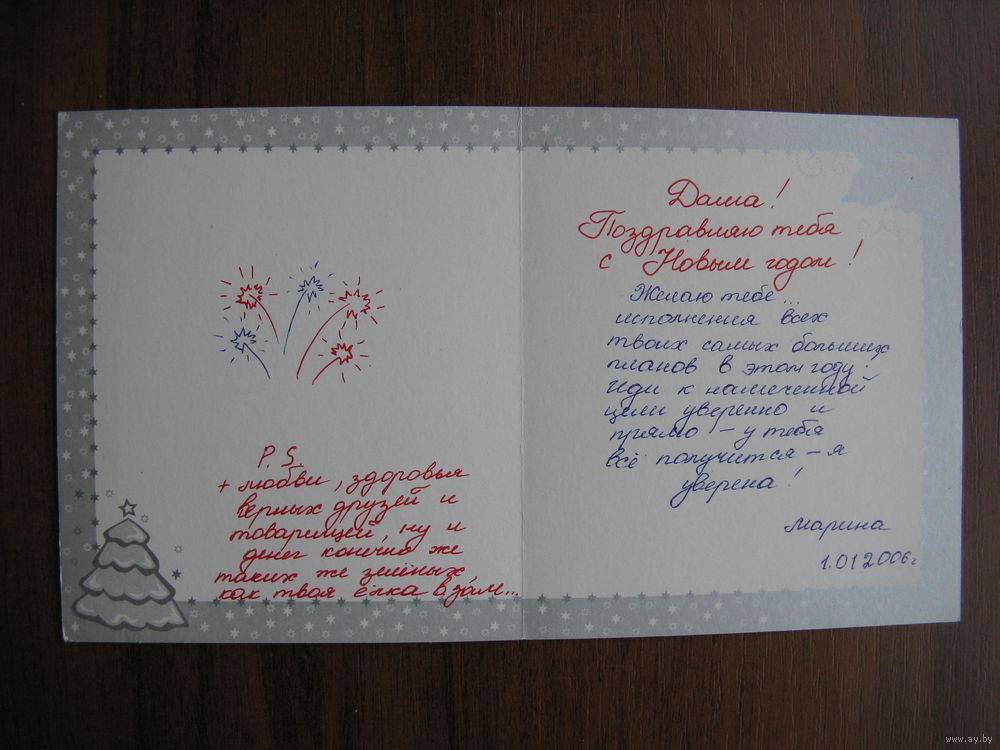 P. S.
+ любви, здоровья
верных друзей и
товарищей, ну и
денег конечно же
таких же зелёных
как твоя ёлка в зале...
Даша!
Поздравляю тебя
с Новым годом!
Желаю тебе...
исполнения всех
твоих самых больших
планов в этом году.
Иди к намеченной
цели уверенно и
прямо – у тебя
всё получится – я
уверена!
Марина
1.01 2006г
www.ay.by